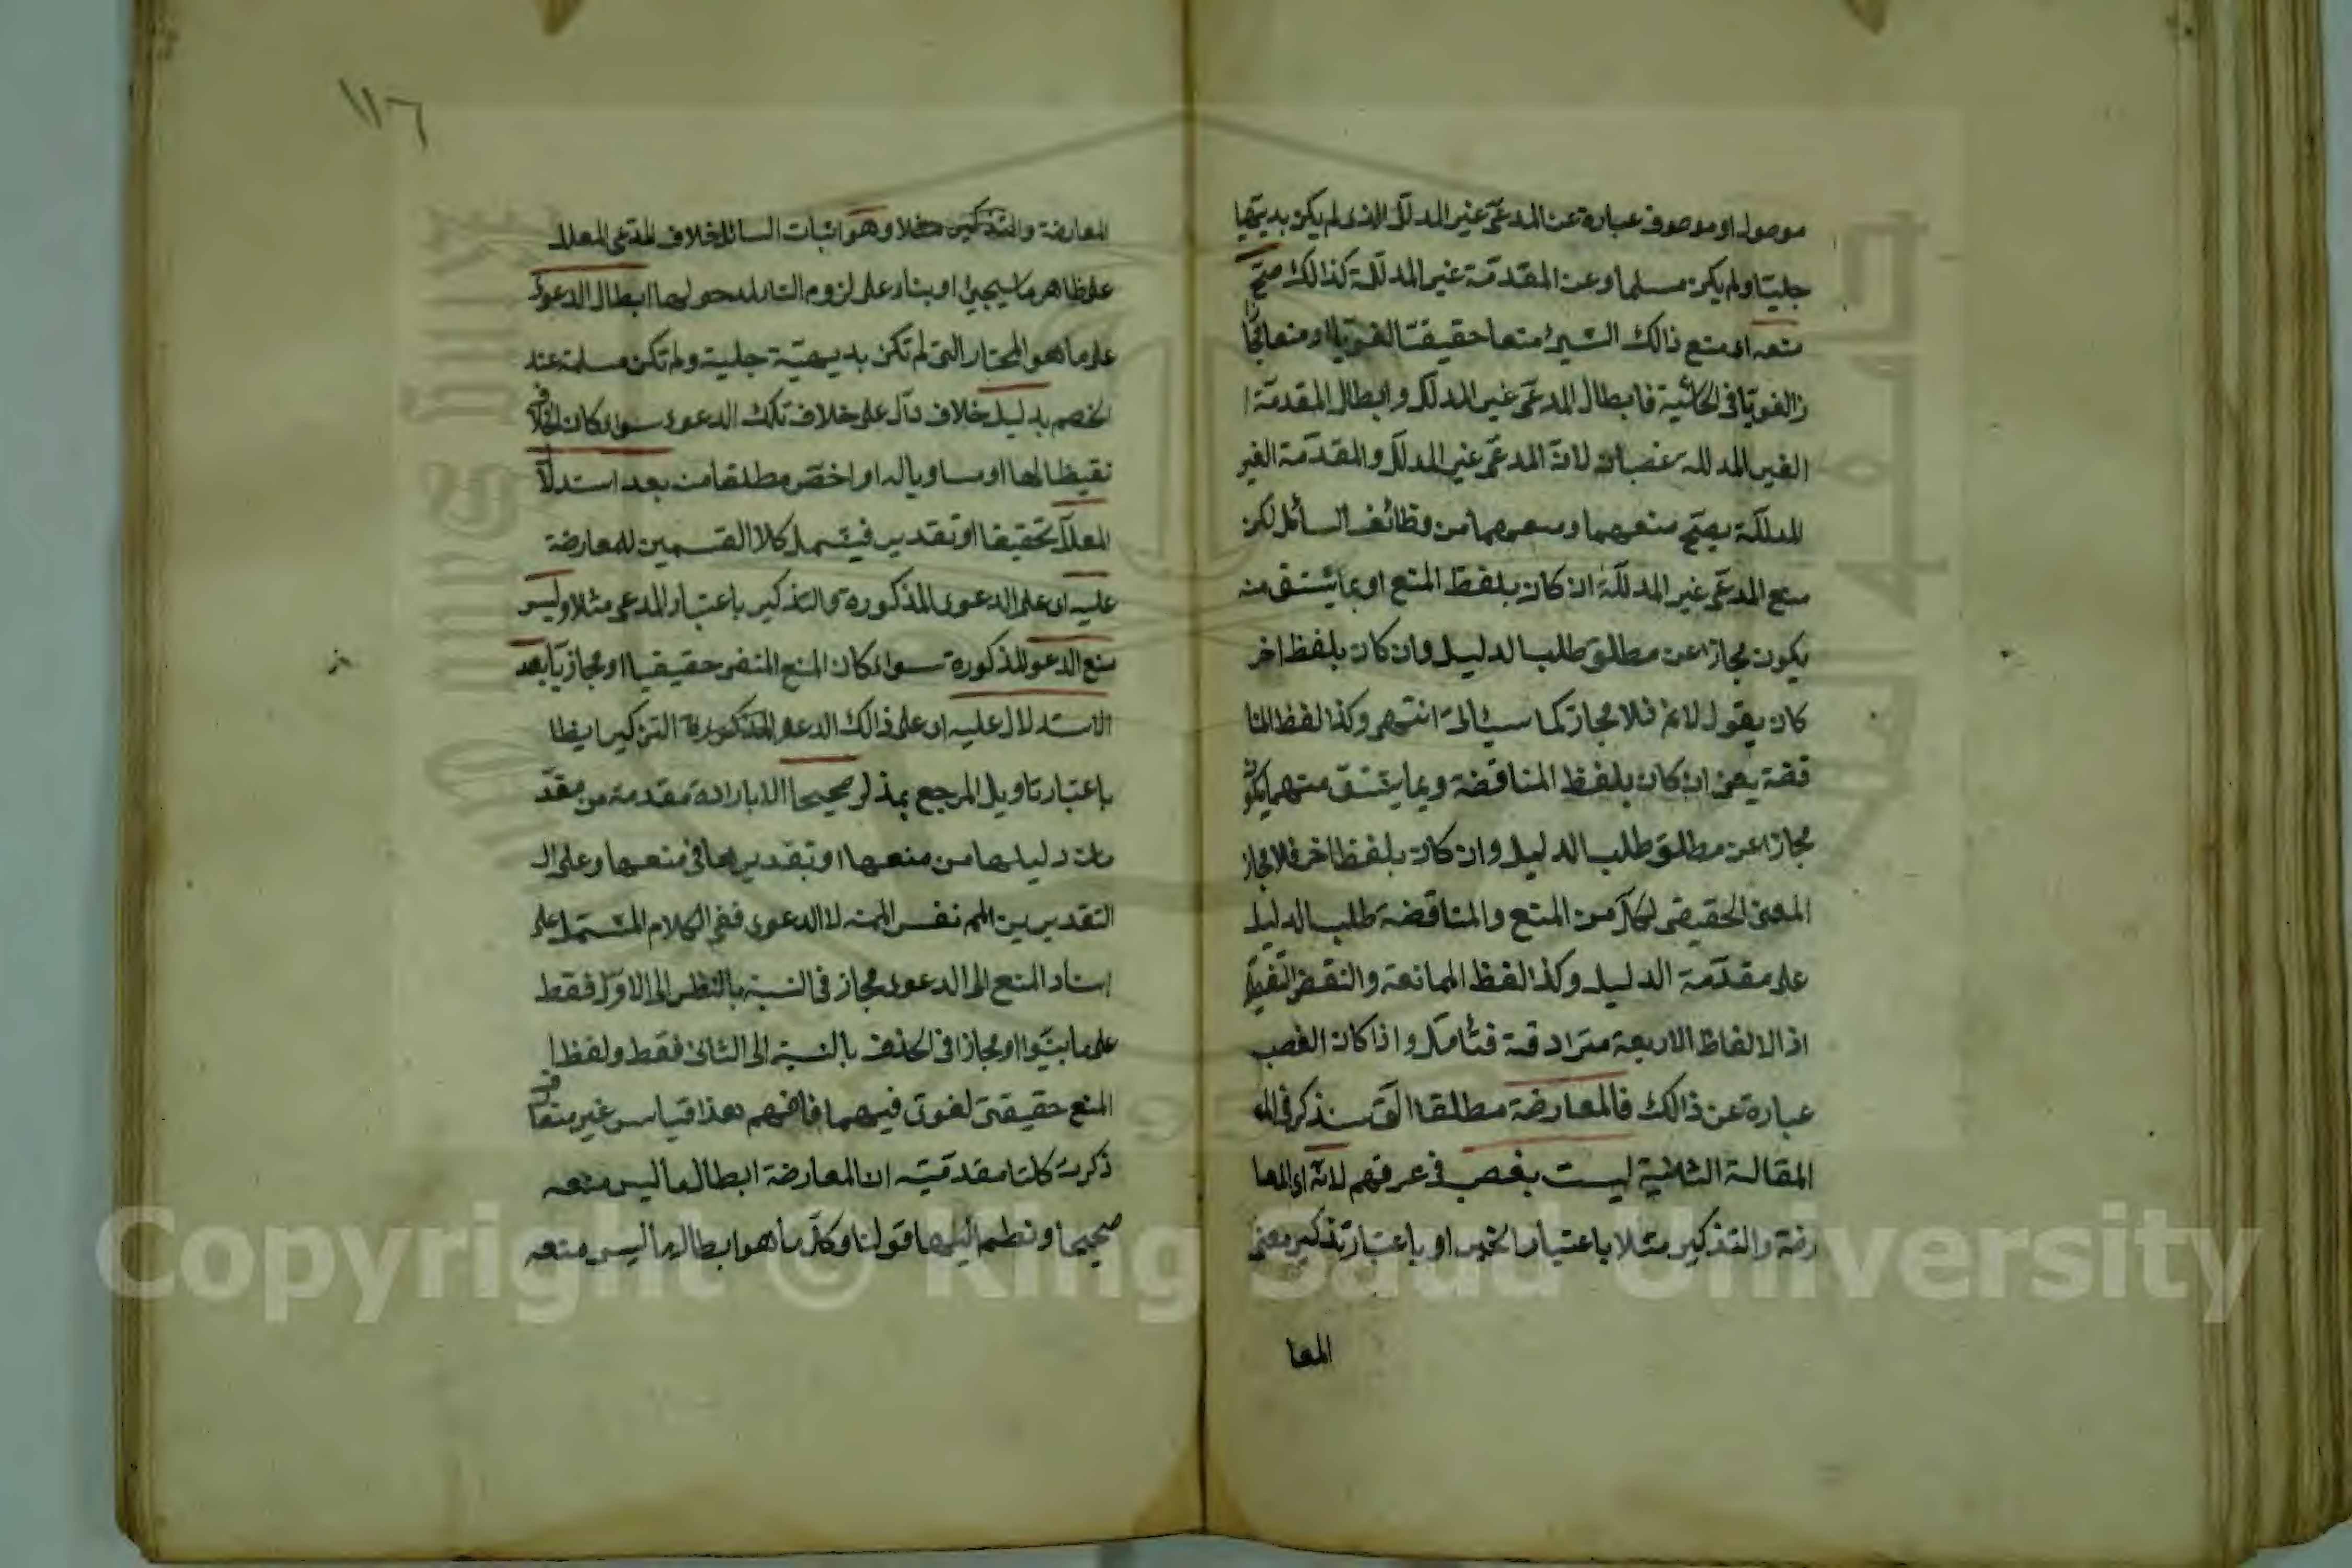 موصول او موصوف عبارة عن المدعى غير المدلل الذى لم يكن بديهيا
جليا ولم يكن مسلما وعن المقدمة غير المدللة كذالك صح
منعه اى منع ذالك الشيئ منعا حقيقيا لغويا او منعا مجا
زا لغويا فى الحاشية فابطال المدعى غير المدلل وابطال المقدمة ا
الغير المدلله غصبان لان المدعى غير المدلل والمقدمة الغير
المدللة يصح منعهما ومنعهما من وظائف السائل لكن
منع المدعى غير المدللة ان كان بلفظ المنع او بما يشتق منه
يكون مجازا عن مطلق طلب الدليل وان كان بلفظ اخر
كان يقول لانم فلا مجاز كما سيئاتى انتهى وكذا لفظ المنا
قضة يعنى ان كان بلفظ المناقضة وبما يشتق منهما يكون
مجازا عن مطلق طلب الدليل وان كان بلفظ اخر فلا مجاز
المعنى الحقيقى لكل من المنع والمناقضة طلب الدليل
على مقدمة الدليل وكذا لفظ الممانعة والنقض
اذ الالفاظ الاربعة مترادفة فتأمل واذا كان الغصب
عبارة عن ذالك فالمعارضة مطلقا التى سنذكر فى الم
المقالة الثانية ليست بغصب فى عرفهم لانه اى المعا
رضة والتذكير مثلا باعتبار الخبر او باعتبار تذكير معنى
المعا
١١٦
المعارضة والتذكير مثلا وهو اثبات السائل خلاف المدعى المعلل
على ظاهر ما سيجيئ او بناء على لزوم التا ابطال الدعوى
على ما هو المختار التى لم تكن بديهية جلية ولم تكن مسلمة عند
الخصم بدليل خلاف دال على خلاف تلك الدعوى سواء كان الخلاف
نقيظا لها او مساويا له او اخص مطلقا من بعد استدلا
المعلل تحقيقا او تقديرا فيشمل كلا القسمين للمعارضة
عليه اى على الدعوى المذكورة والتذكير باعتبار المدعى مثلا وليس
منع الدعوى المذكورة سواء كان المنع المنفى حقيقيا او مجازيا بعد
الاستدلال عليه اى على ذالك الدعوى المذكورة التذكير ايظا
باعتبار تاويل المرجع بمذكر صحيحا الا بارادة مقدمة من مقد
مات دليلها من منعها او بتقديرها فى منعها وعلى ال
التقديرين المم نفس المقدمة لا الدعوى ففى الكلام المشتمل على
اسناد المنع الى الدعوى مجاز فى النسبة بالنظر الى الاول فقط
على ما بينوا او مجازا فى الحذف بالنسبة الى الثانى فقط ولفظ ا
المنع حقيقتى لغوى فيهما فافهم هذا قياس غير متعارف
ذكرت كلتا مقدمتيه ان المعارضة ابطال ما ليس منعه
صحيحا ونظم اليها قولنا وكل ما هو ابطال ما ليس منعه
Copyright © King Saud University